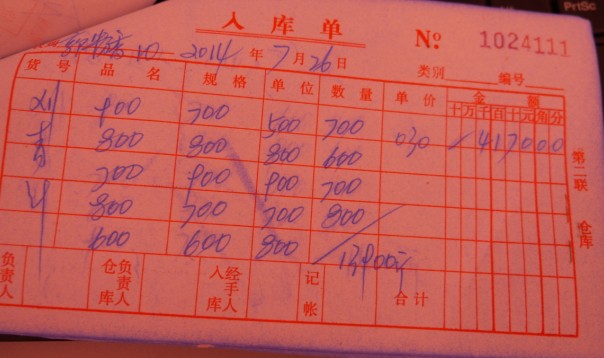 入库单
№ 1024111
10 2014年7月26日
类别 编号
货号 品名 规格 单位 数量 单价 金额
十万千百十元角分
刘 900 700 500 700 030 417000
青 800 800 800 600
700 900 900 700
800 700 700 800
600 600 800 13900斤
第二联 仓库
负责人 仓库负责人 入库经手人 记帐 合计
PrtSc